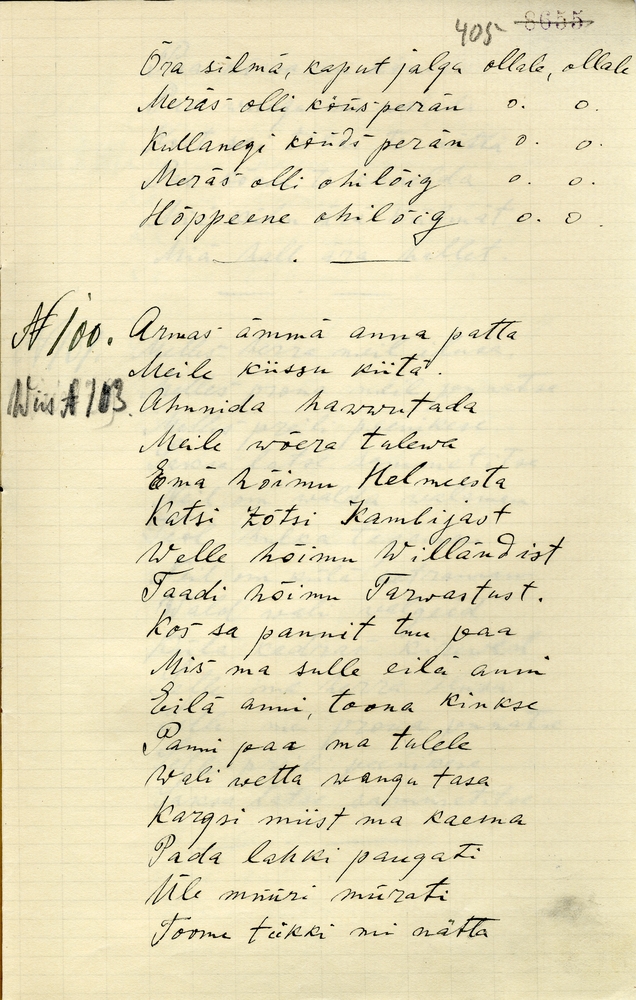 405 8655
Õra silmä, kaput jalga ollale, ollale
Meräs olli köüs perän o. o.
Kullanegi köüds perän o. o.
Meräs olli ohilõig o. o.
Hõppeene ohilõig o. o.
N 100. Armas ämmä anna patta
Meile kiissu kiitä.
Wiis N 103. Ahunida hawwutada
Meile wõera talewa
Emä hõimu Helmeesta
Katsi zõtsi Kambijast
Welle hõimu Willändist
Taadi hõimu Tarwastust.
Kos sa pannit tuu paa
Mis ma sulle eilä anni
Eilä anni, toona kinkse
Panni paa ma tulele
Wali wetta wangu tasa
Kargsi miist ma kaema
Pada lahki paugati
Üle müüri mürati
Toome tükki ni nätta